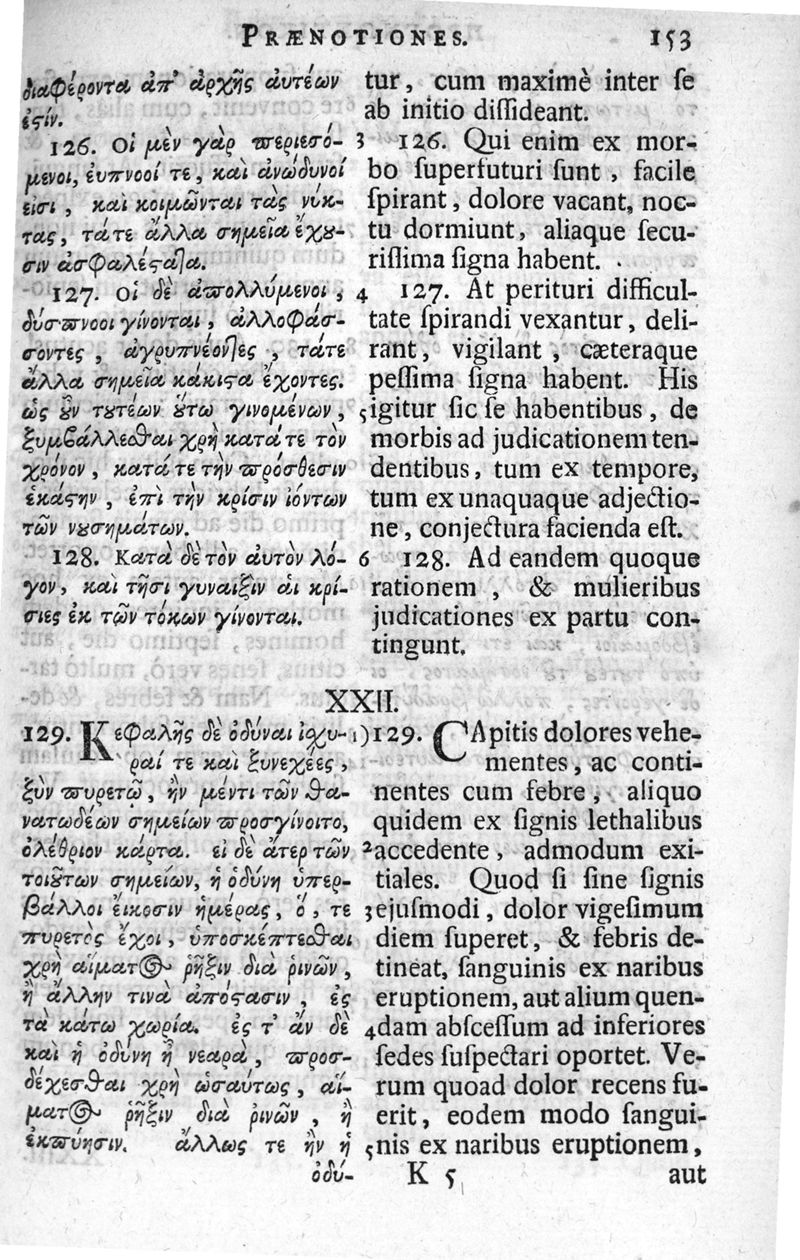 PRÆNOTIONES. 153
διαφέροντα ἀπ' ἀρχῆς ἀυτέων
ἐςίν.
126. Οἱ μὲν γὰρ περιεσό-
μενοι, ἐυπνοοί τε, καὶ ἀνώδυνοί
εἰσι, καὶ κοιμῶνται τὰς νύκ-
τας, τάτε ἄλλα σημεῖα ἔχȣ-
σιν ἀσφαλέςαλα.
127. Οἱ δὲ ἀπολλύμενοι,
δύσπνοοι γίνονται, ἀλλοφάσ-
σοντες, ἀγρυπνέοντες, τάτε
ἄλλα σημεῖα κάκιςα ἔχοντες.
ὡς ȣ̓ν τȣτέων ȣ̔́τω γινομένων,
ξυμβάλλεσθαι χρὴ κατά τε τὸν
χρόνον, κατά τε τὴν πρόσθεσιν
ἑκάςην, ἐπὶ τὴν κρίσιν ἰόντων
τῶν νȣσημάτων.
128. Κατὰ δὲ τὸν ἀυτὸν λό-
γον, καὶ τῇσι γυναιξὶν ἁι κρί-
σιες ἐκ τῶν τόκων γίνονται.
tur, cum maximè inter ſe
ab initio diſſideant.
3 126. Qui enim ex mor-
bo ſuperfuturi ſunt, facile
ſpirant, dolore vacant, noc-
tu dormiunt, aliaque ſecu-
riſſima ſigna habent.
4 127. At perituri difficul-
tate ſpirandi vexantur, deli-
rant, vigilant, cæteraque
peſſima ſigna habent. His
5 igitur ſic ſe habentibus, de
morbis ad judicationem ten-
dentibus, tum ex tempore,
tum ex unaquaque adjectio-
ne, conjectura facienda eſt.
6 128. Ad eandem quoque
rationem, & mulieribus
judicationes ex partu con-
tingunt.
XXII.
129. Κεφαλῆς δὲ ὀδύναι ἰσχυ-
ραί τε καὶ ξυνεχέες,
ξὺν πυρετῷ, ἢν μέντι τῶν θα-
νατωδέων σημείων προσγίνοιτο,
ὀλέθριον κάρτα. εἰ δὲ ἄτερ τῶν
τοιȣ́των σημείων, ἡ ὀδύνη ὑπερ-
βάλλοι ἔικοσιν ἡμέρας, ὅ, τε
πυρετὸς ἔχοι, ὑποσκέπτεσθαι
χρὴ αἵματος ῥῆξιν διὰ ῥινῶν,
ἢ ἄλλην τινὰ ἀπόςασιν, ἐς
τὰ κάτω χωρία. ἔς τ' ἂν δὲ
καὶ ἡ ὀδύνη ᾖ νεαρὰ, προσ-
δέχεσθαι χρὴ ὡσαύτως, αἵ-
ματος ῥῆξιν διὰ ῥινῶν, ἢ
ἐκπύησιν. ἄλλως τε ἢν ἡ
ὀδύ-
1) 129. CApitis dolores vehe-
mentes, ac conti-
nentes cum febre, aliquo
quidem ex ſignis lethalibus
2 accedente, admodum exi-
tiales. Quod ſi ſine ſignis
3 ejuſmodi, dolor vigeſimum
diem ſuperet, & febris de-
tineat, ſanguinis ex naribus
eruptionem, aut alium quen-
4 dam abſceſſum ad inferiores
ſedes ſuſpectari oportet. Ve-
rum quoad dolor recens fu-
erit, eodem modo ſangui-
5 nis ex naribus eruptionem,
K 5 aut